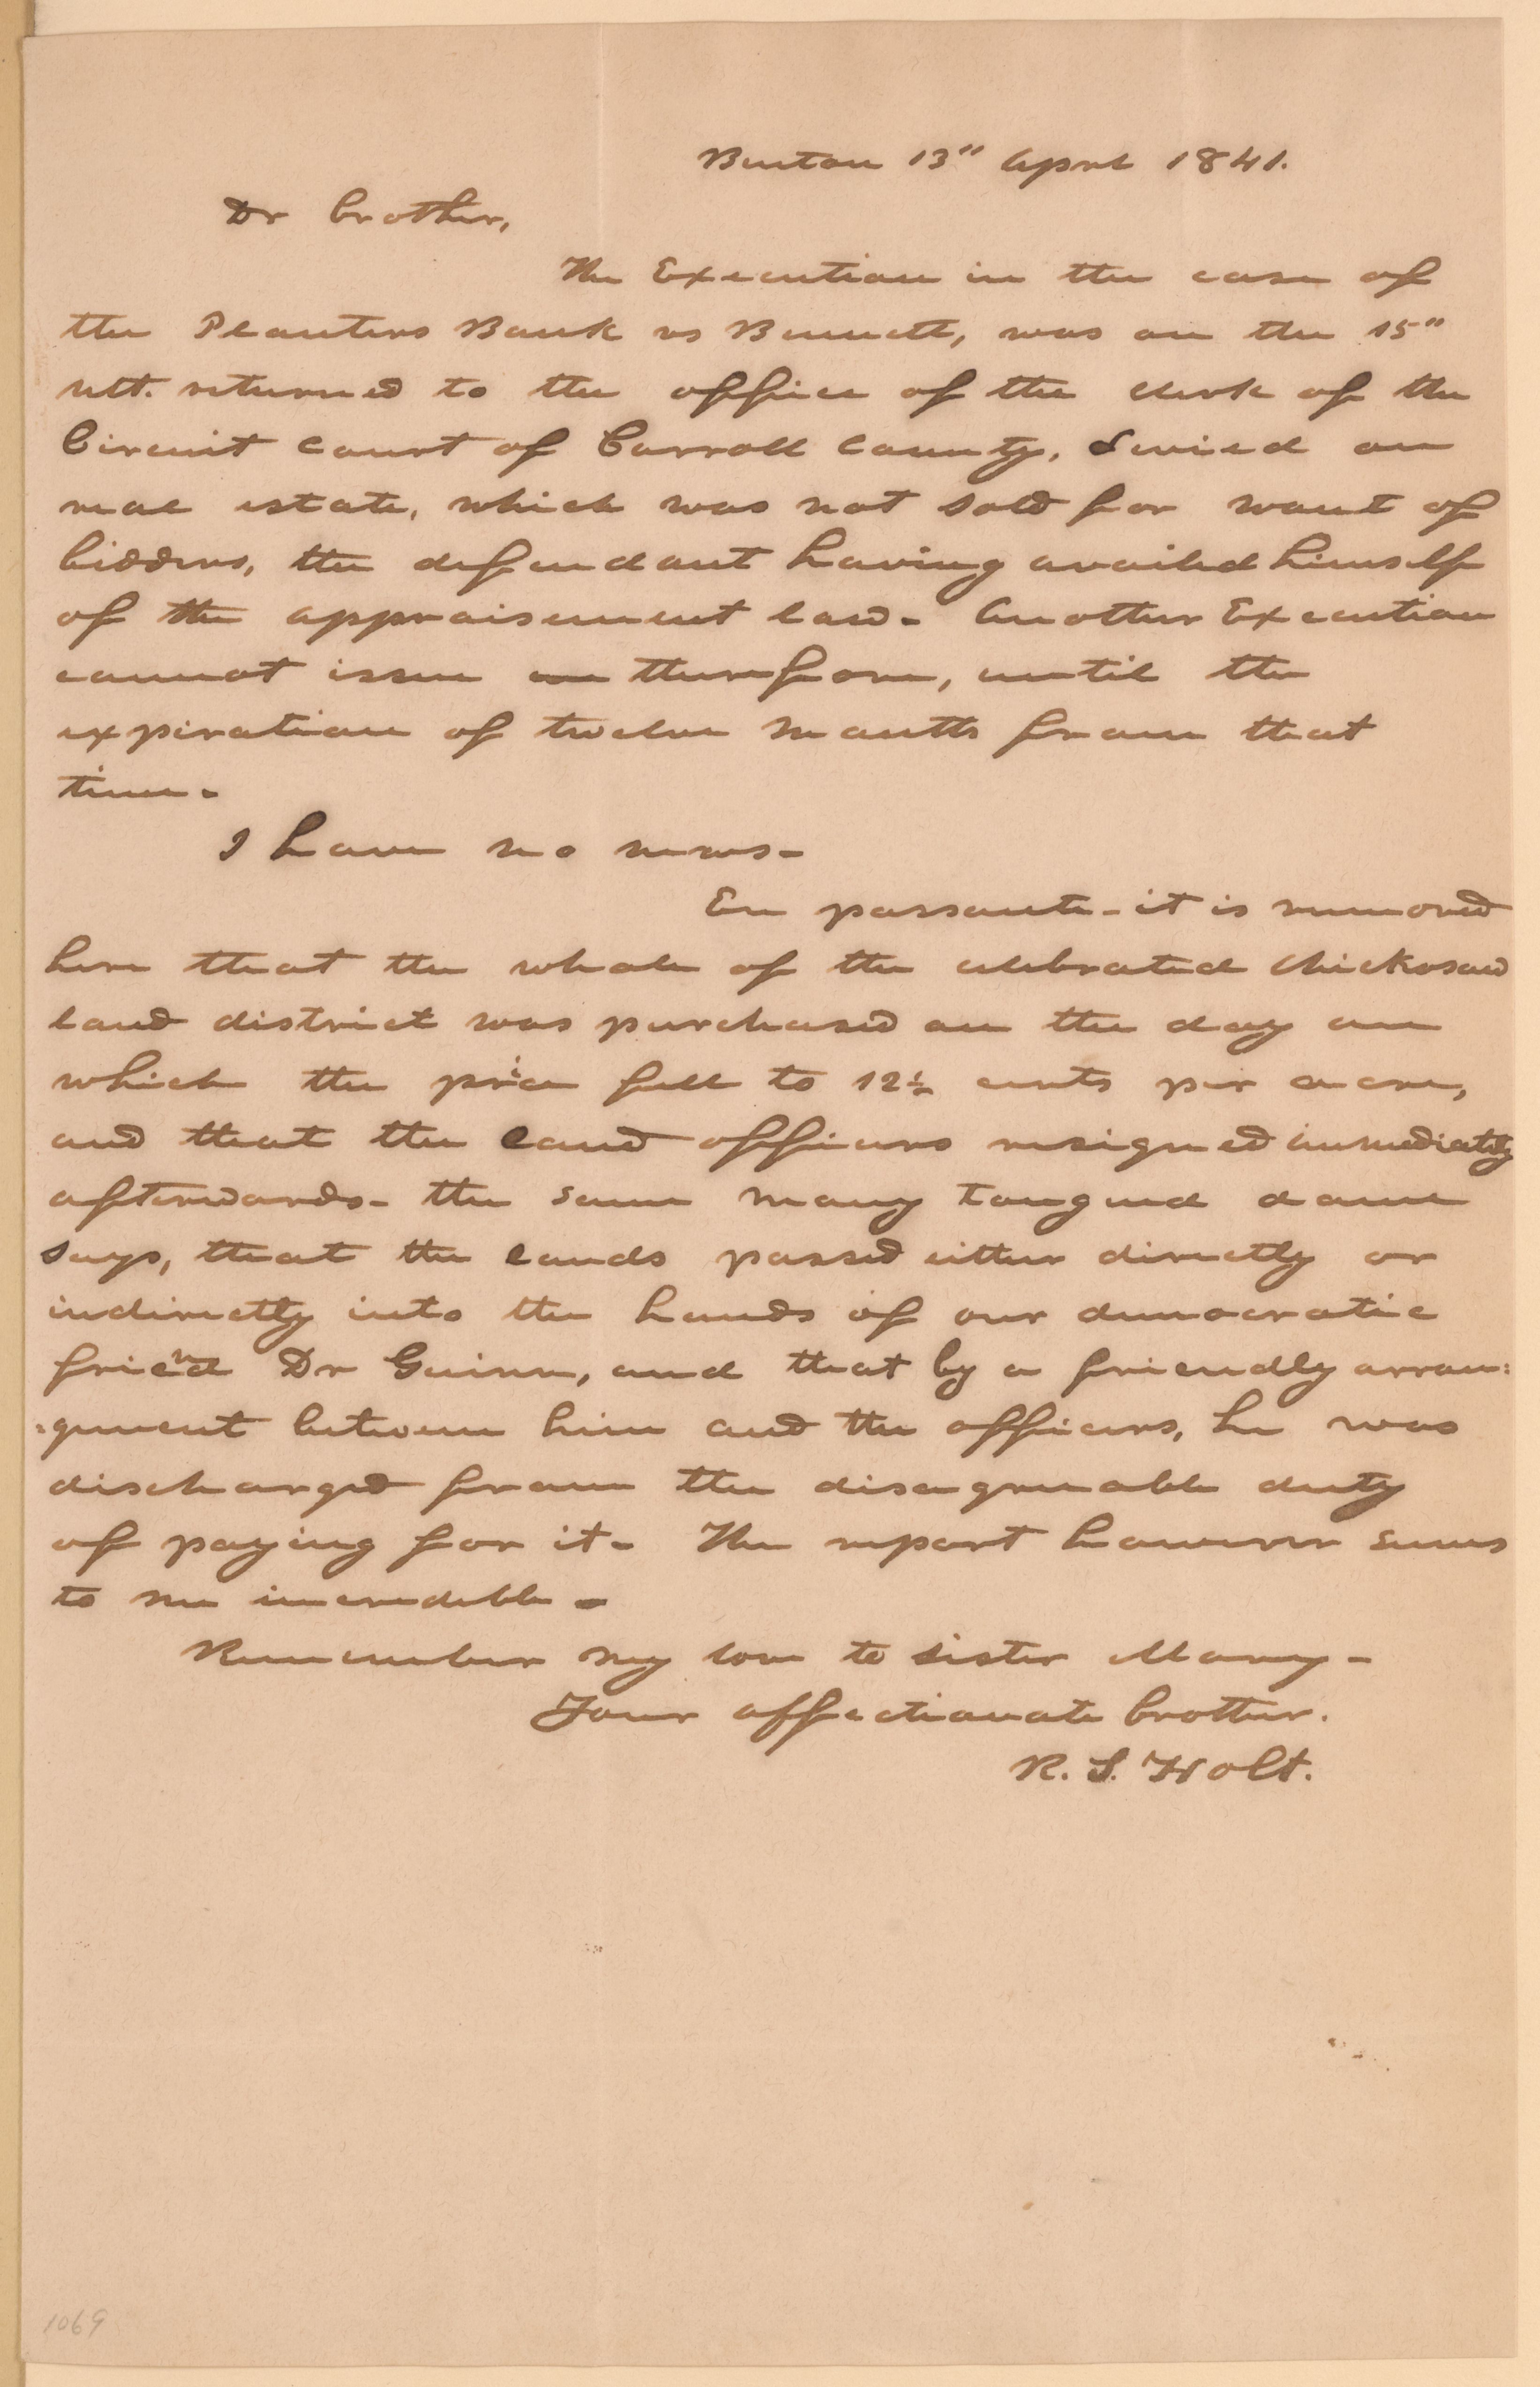 Benton 13" April 1841.
Dr brother,
The Execution in the case of
the Planters Bank vs Bennett, was on the 15"
ult. returned to the office of the clerk of the
Circuit court of Carroll county, Levied on
real estate, which was not sold for want of
bidders, the defendant having availed himself
of the appraisement law - Another Execution
cannot issue on therefore, until the
expiration of twelve months from that
time -
I have no news -
En passante - it is rumored
here that the whole of the celebrated Chickosaw
land district was purchased on the day on
which the price fell to 12½ cents per acre,
and that the land officers resigned immediately
afterwards - the same many tongued dame
says, that the lands passed either directly or
indirectly into the hands of our democratic
friend Dr Guinn, and that by a friendly arran:
:gement between him and the officers, he was
discharged from the disagreeable duty
of paying for it - The report however seems
to me incredible -
Remember my love to sister Mary -
Your affectionate brother.
R. S. Holt.
1069